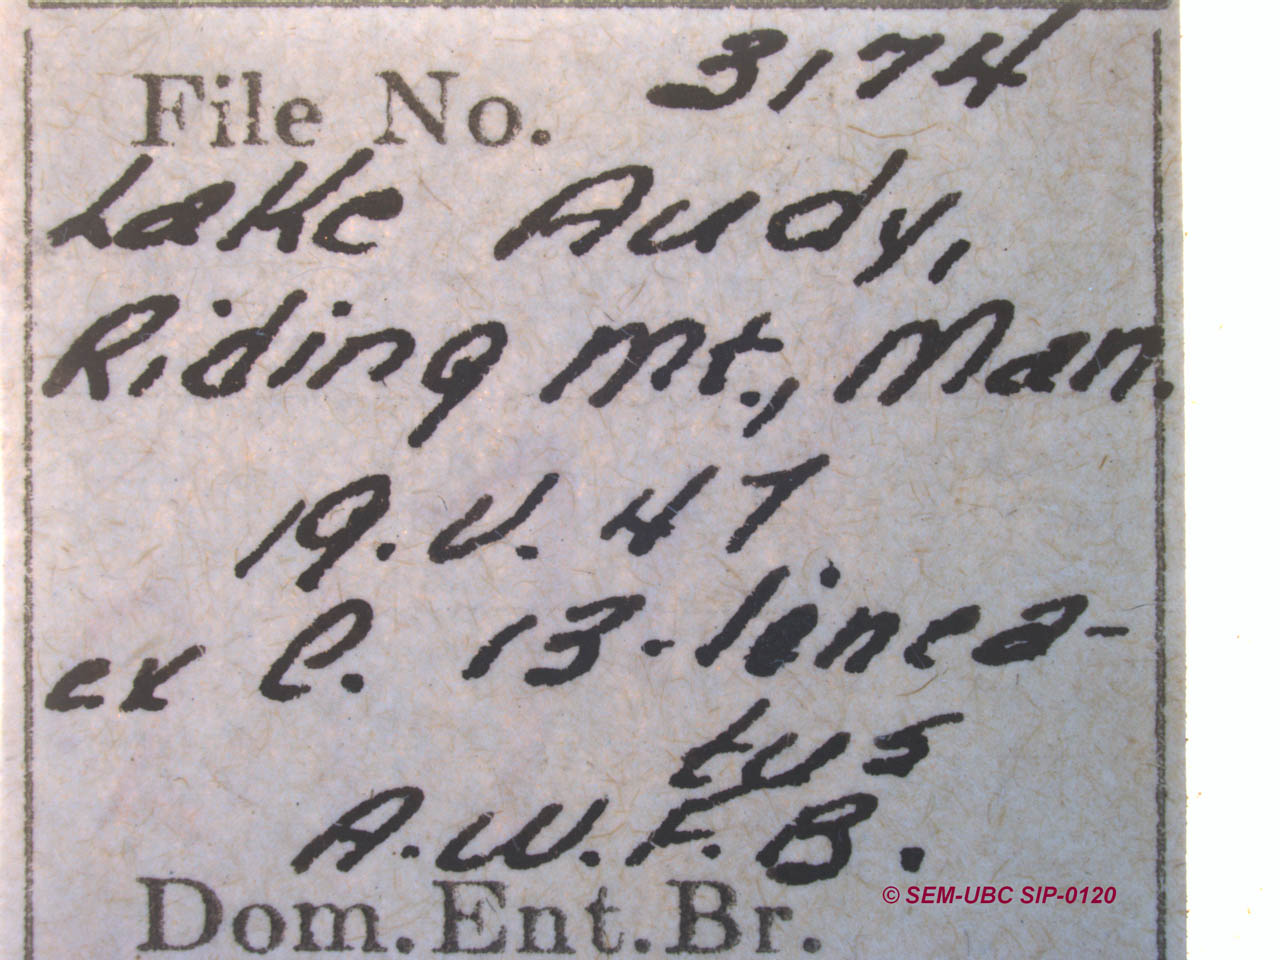 File No. 3174
Lake Audy,
Riding Mt., Man.
19.V.47
ex C. 13-linea-
tus
A.W.F.B.
Dom.Ent.Br.
© SEM-UBC SIP-0120